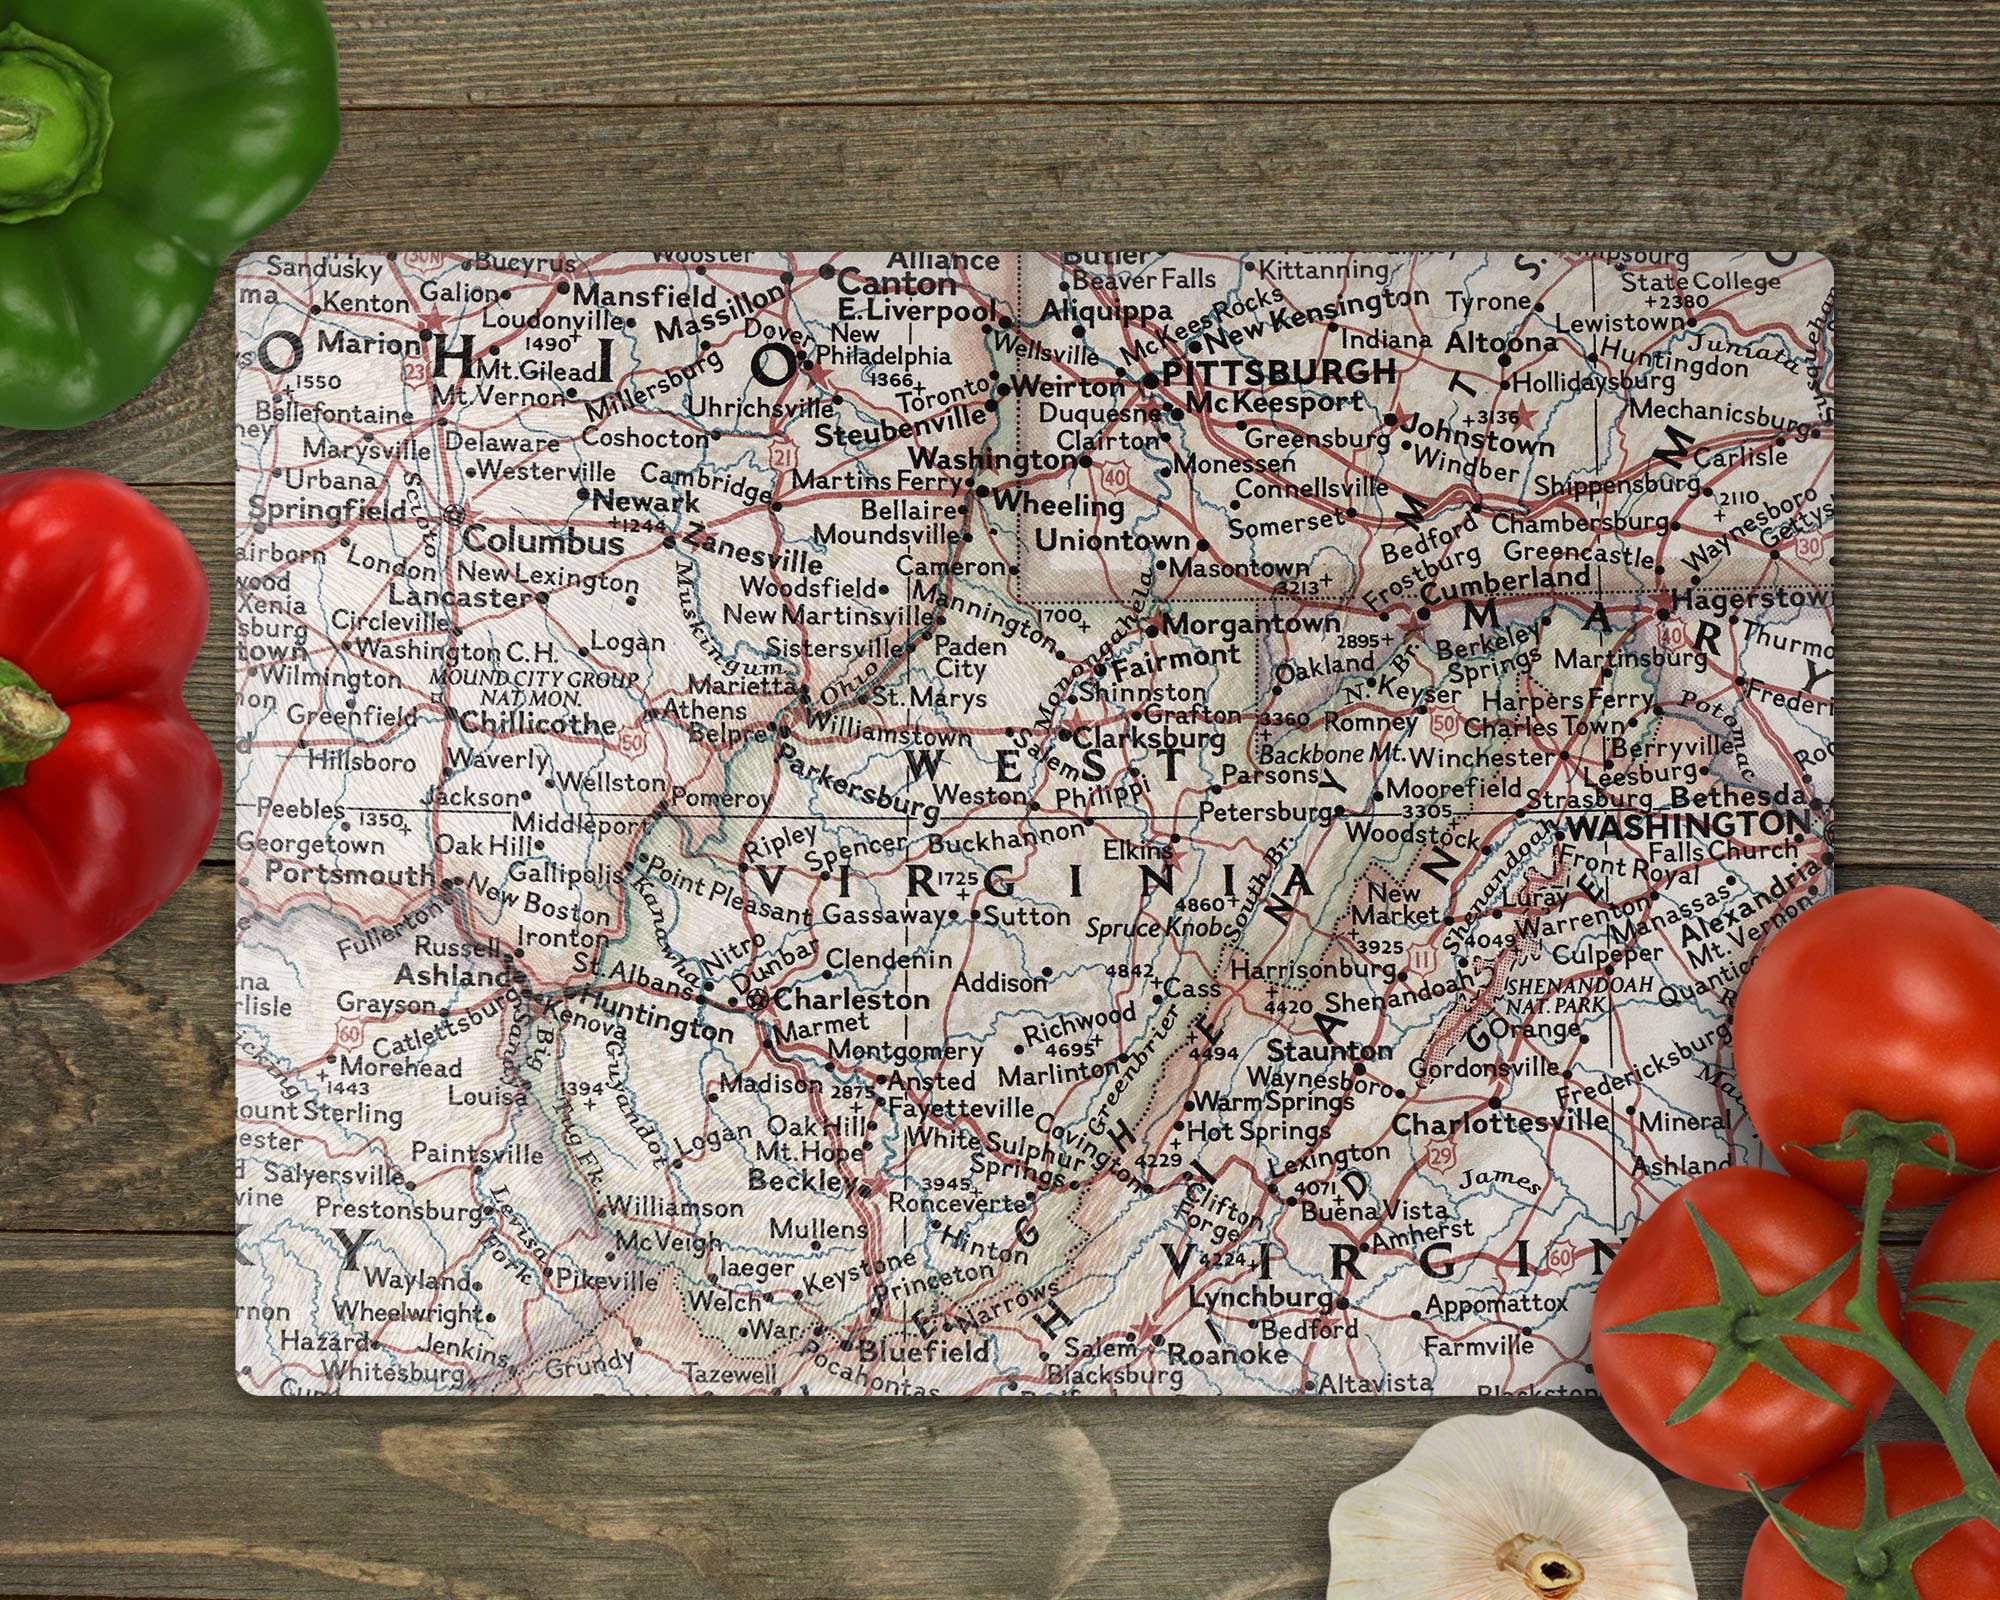 Sandusky
Bucyrus
Wooster
Alliance
Butler
Kittanning
State College
ma
Kenton
Galion
Mansfield
Massillon
Canton
Beaver Falls
+2380
Loudonville
E. Liverpool
Aliquippa
McKees Rocks
New Kensington
Tyrone
Lewistown
Juniata
OHIO
Marion
1490+
Dover
New
Philadelphia
Wellsville
Indiana
Altoona
Huntingdon
23
Mt. Gilead
1366+
PITTSBURGH
Hollidaysburg
+1550
Mt. Vernon
Millersburg
Uhrichsville
Toronto
Weirton
Duquesne
McKeesport
+3136
Bellefontaine
Steubenville
Clairton
Greensburg
Johnstown
Mechanicsburg
Marysville
Delaware
Coshocton
21
Washington
Monessen
Windber
Carlisle
Urbana
Westerville
Cambridge
Martins Ferry
40
Connellsville
Shippensburg
2110
+
Springfield
Scioto
Newark
+1244
Bellaire
Wheeling
Somerset
Bedford
Chambersburg
Waynesboro
Gettys
Columbus
Zanesville
Moundsville
Uniontown
Greencastle
30
airborn
London
New Lexington
Woodsfield
Cameron
Masontown
Frostburg
wood
Xenia
Lancaster
Muskingum
New Martinsville
Mannington
3213+
Cumberland
Hagerstow
sburg
Circleville
1700+
Monongahela
Morgantown
2895+
MARY
40
Thurmo
town
Washington C.H.
Logan
Sistersville
Paden
City
Fairmont
Oakland
Berkeley
Springs
Martinsburg
Wilmington
MOUND CITY GROUP
NAT. MON.
Marietta
Ohio
St. Marys
Shinnston
N. Br.
Keyser
Harpers Ferry
Potomac
Frederi
non
Greenfield
Chillicothe
Athens
Belpre
Williamstown
Grafton
3360
+
Romney
50
Charles Town
50
Hillsboro
Waverly
Parkersburg
Salem
Clarksburg
Backbone Mt.
Winchester
Berryville
Leesburg
WEST
Wellston
Parsons
Moorefield
Strasburg
Bethesda
Peebles
1350+
Jackson
Pomeroy
Weston
Philippi
Petersburg
3305
+
Middleport
Ripley
Spencer
Buckhannon
Woodstock
Shenandoah
WASHINGTON
Georgetown
Oak Hill
Elkins
Front Royal
Falls Church
Portsmouth
Gallipolis
Point Pleasant
VIRGINIA
1725+
South Br.
New
Market
Luray
Manassas
Alexandria
Fullerton
New Boston
Kanawha
Gassaway
Sutton
4860+
Spruce Knob
Warrenton
Mt. Vernon
Russell
Ironton
Nitro
Dunbar
Clendenin
+3925
11
4049
Culpeper
Ashland
St. Albans
Addison
4842+
Cass
Harrisonburg
Shenandoah
SHENANDOAH
NAT. PARK
Quantic
Grayson
Huntington
Charleston
+4420
60
Catlettsburg
Kenova
Marmet
Richwood
4695+
Greenbrier
+4494
Staunton
Orange
Fredericksburg
Morehead
+1443
Big
Sandy
Guyandot
Montgomery
Marlinton
Waynesboro
Gordonsville
Louisa
1394+
Madison
2875
+
Ansted
Warm Springs
ount Sterling
Tug Fk.
Fayetteville
Covington
Hot Springs
Charlottesville
Mineral
ester
Paintsville
Logan
Oak Hill
Mt. Hope
White Sulphur
Springs
+4229
Lexington
29
James
Ashland
Salyersville
Beckley
3945+
4071+
vine
Prestonsburg
Levisa
Fork
Williamson
Mullens
Ronceverte
Clifton
Forge
Buena Vista
Amherst
KY
McVeigh
Hinton
4224+
VIRGIN
60
Wayland
Pikeville
Iaeger
Keystone
Princeton
rnon
Wheelwright
Welch
Narrows
Lynchburg
Appomattox
Hazard
Jenkins
War
Bedford
Farmville
Whitesburg
Grundy
Tazewell
Pocahontas
Bluefield
Salem
Roanoke
Blacksburg
Altavista
Blackston